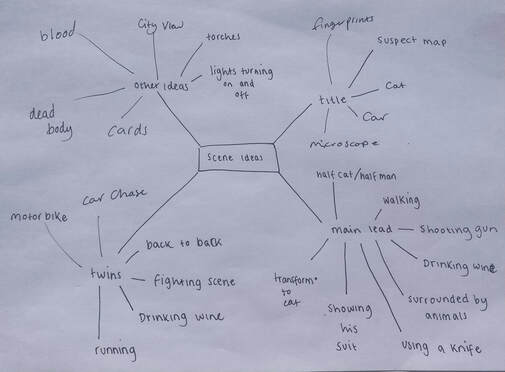 blood
City View
torches
lights turning
on and
off
other ideas
dead
body
cards
fingerprints
suspect map
cat
Car
title
microscope
Scene Ideas
half cat/half man
walking
main lead
Shooting gun
Drinking wine
surrounded by
animals
using a Knife
Showing
his
Suit
transform
to
cat
Car Chase
motorbike
back to back
twins
fighting scene
Drinking wine
running